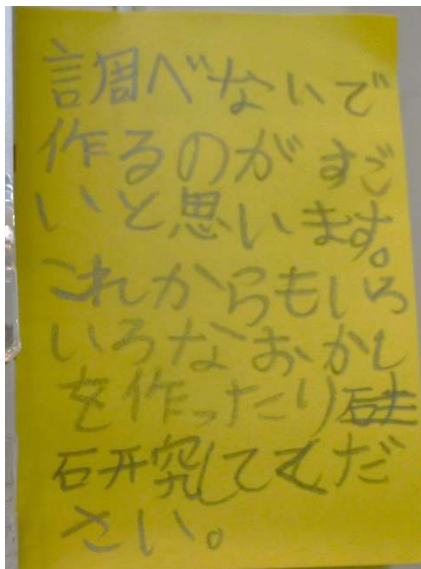 調べないで
作るのがすご
いと思います。
これからもいろ
いろなおかし
を作ったり
研究してくだ
さい。